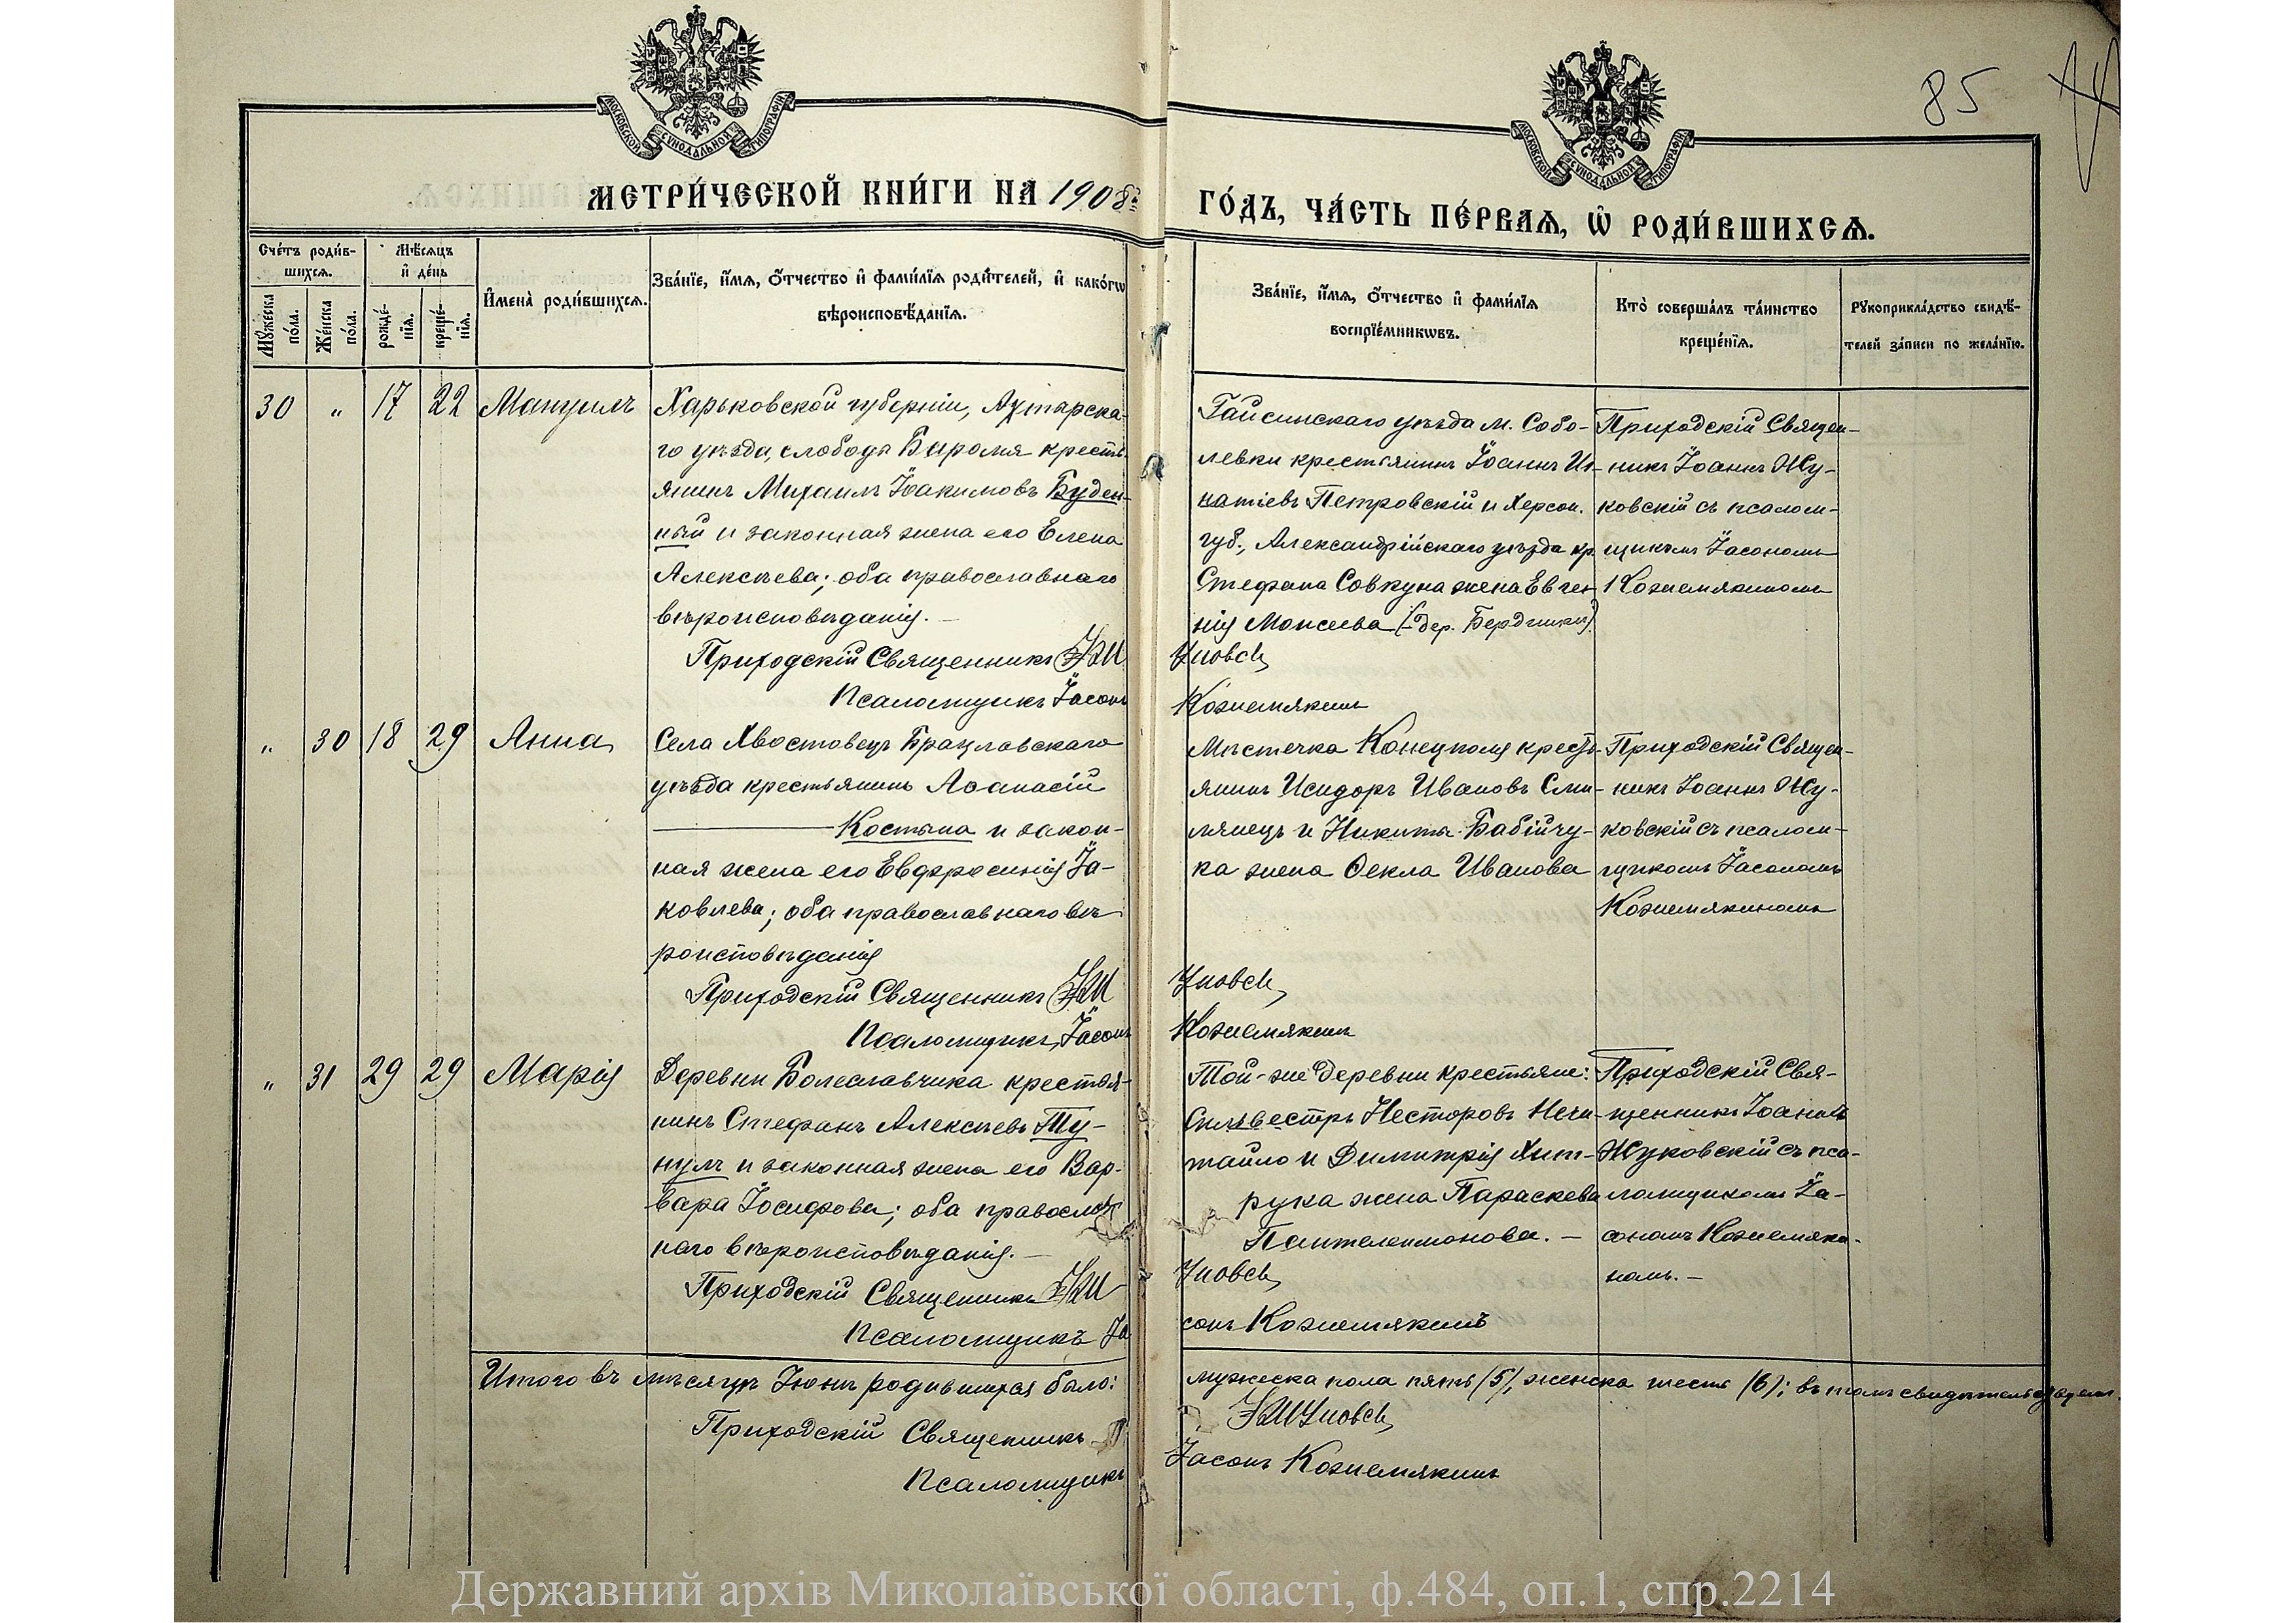 85
МОСКОВСКОЙ СУНОДАЛЬНОЙ ТИПОГРАФІИ
МОСКОВСКОЙ СУНОДАЛЬНОЙ ТИПОГРАФІИ
МЕТРИ́ЧЕСКОЙ КНИ́ГИ НА 1908й
ГО́ДЪ, ЧА́СТЬ ПЕ́РВАѦ, Ѡ РОДИ́ВШИХСѦ.
Сче́тъ роди́в-
шихсѧ.
Мѣ́сѧцъ
и҆ де́нь
И҆мена̀ роди́вшихсѧ.
Зва́нїе, и҆́мѧ, ѻ҆́тчество и҆ фами́лїѧ роди́телей, и҆ како́гѡ
вѣроисповѣ́данїѧ.
Мꙋ́жеска
по́ла.
Же́нска
по́ла.
рожде́-
нїѧ.
креще́-
нїѧ.
Зва́нїе, и҆́мѧ, ѻ҆́тчество и҆ фами́лїѧ
воспрїе́мникѡвъ.
Кто̀ соверша́лъ та́инство
креще́нїѧ.
Рꙋкоприкла́дство свидѣ́-
телей за́писи по жела́нїю.
30 „ 17 22 Мануилъ
Харьковской губерніи, Ахтырска-
го уѣзда, слободы Бироля кресть-
янинъ Михаилъ Іоакимовъ Буден-
ный и законная жена его Елена
Алексѣева; оба православнаго
вѣроисповѣданія. —
Приходскій Священникъ І Жу
Псаломщикъ Іасонъ
Гайсинскаго уѣзда м. Собо-
левки крестьянинъ Іоаннъ Иг-
натіевъ Петровскій и Херсон.
губ., Александрійскаго уѣзда кр.
Стефана Совкуна жена Евге-
нія Моисеева (дер. Бердинки)
ковскі
Кожемякинъ
Приходскій Священ-
никъ Іоаннъ Жу-
ковскій съ псалом-
щикомъ Іасономъ
Кожемякиномъ
„ 30 18 29 Анна
Села Хвостовецъ Брацлавскаго
уѣзда крестьянинъ Аѳанасій
——— Костына и закон-
ная жена его Евфросинія Іа-
ковлева; оба православнаго вѣ-
роисповѣданія
Приходскій Священникъ І Жу
Псаломщикъ Іасонъ
Мѣстечка Конецполя кресть-
янинъ Исидоръ Ивановъ Сми-
лянецъ и Никиты Бабійчу-
ка жена Ѳекла Иванова
ковскі
Кожемякинъ
Приходскій Священ-
никъ Іоаннъ Жу-
ковскій съ псалом-
щикомъ Іасономъ
Кожемякиномъ
„ 31 29 29 Марія
Деревни Болеславчика крестья-
нинъ Стефанъ Алексѣевъ Ту-
нулъ и законная жена его Вар-
вара Іосифова; оба православ-
наго вѣроисповѣданія. —
Приходскій Священникъ І Жу
Псаломщикъ Іа
Той-же деревни крестьяне:
Сильвестръ Несторовъ Нечи-
тайло и Димитрія Хит-
рука жена Параскева
Пантелеимонова. —
ковскі
сонъ Кожемякинъ
Приходскій Свя-
щенникъ Іоаннъ
Жуковскій съ пса-
ломщикомъ Іа-
сономъ Кожемяки-
номъ. —
Итого въ мѣсяцѣ Іюнѣ родившихся было:
мужеска пола пять (5), женска шесть (6); въ томъ свидѣтельствуемъ.
Приходскій Священникъ І Жуковскі
Псаломщикъ Іасонъ Кожемякинъ
Державний архів Миколаївської області, ф.484, оп.1, спр.2214